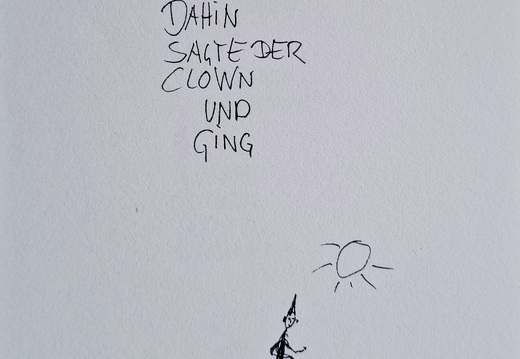 DAHiN
SAGTE DER
CLOWN
UND
GiNG